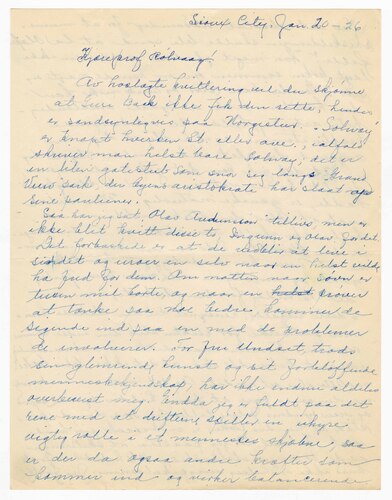 Sioux City, Jan. 20 - 26
Kjære prof Rølvaag!
Av hoslagte kvittering vil du skjønne
at Guri Back ikke fik den sette, hindes
er sandsynligvis paa Norgistur. "Solway"
er knapt hverken St. eller ave., ialfald
skriver man helst bare Solway; det er
en liten gatestut som snor sig langs Grand
View Park der byens aristokrati har slaat op
sine pauluner.
Saa har jeg læst, Olav Audunssøn tillivs men er
ikke blit kvitt disse to, Ingunn og Olav for det.
Det forbarkede er at de vedblir at leve i
sindet og uroer en selv naar en helst vilde
ha fred for dem. Om natten naar søvn er
tusen mil borte, og naar en prøver
at tænke paa noe bedre, kommer de
sigende ind paa en med de problemer
de involverer. For fru Undset, trods
sin glimrende kunst og sit fortræffelige
menneskekjendskap, har ikke endnu aldeles
overbevist meg. Endda jeg er fuldt paa det
rene med at driften spiller en uhyre
vigtig rolle i et menneskes skjæbne saa
er der da ogsaa andre kræfter som
kommer ind og virker balancerende